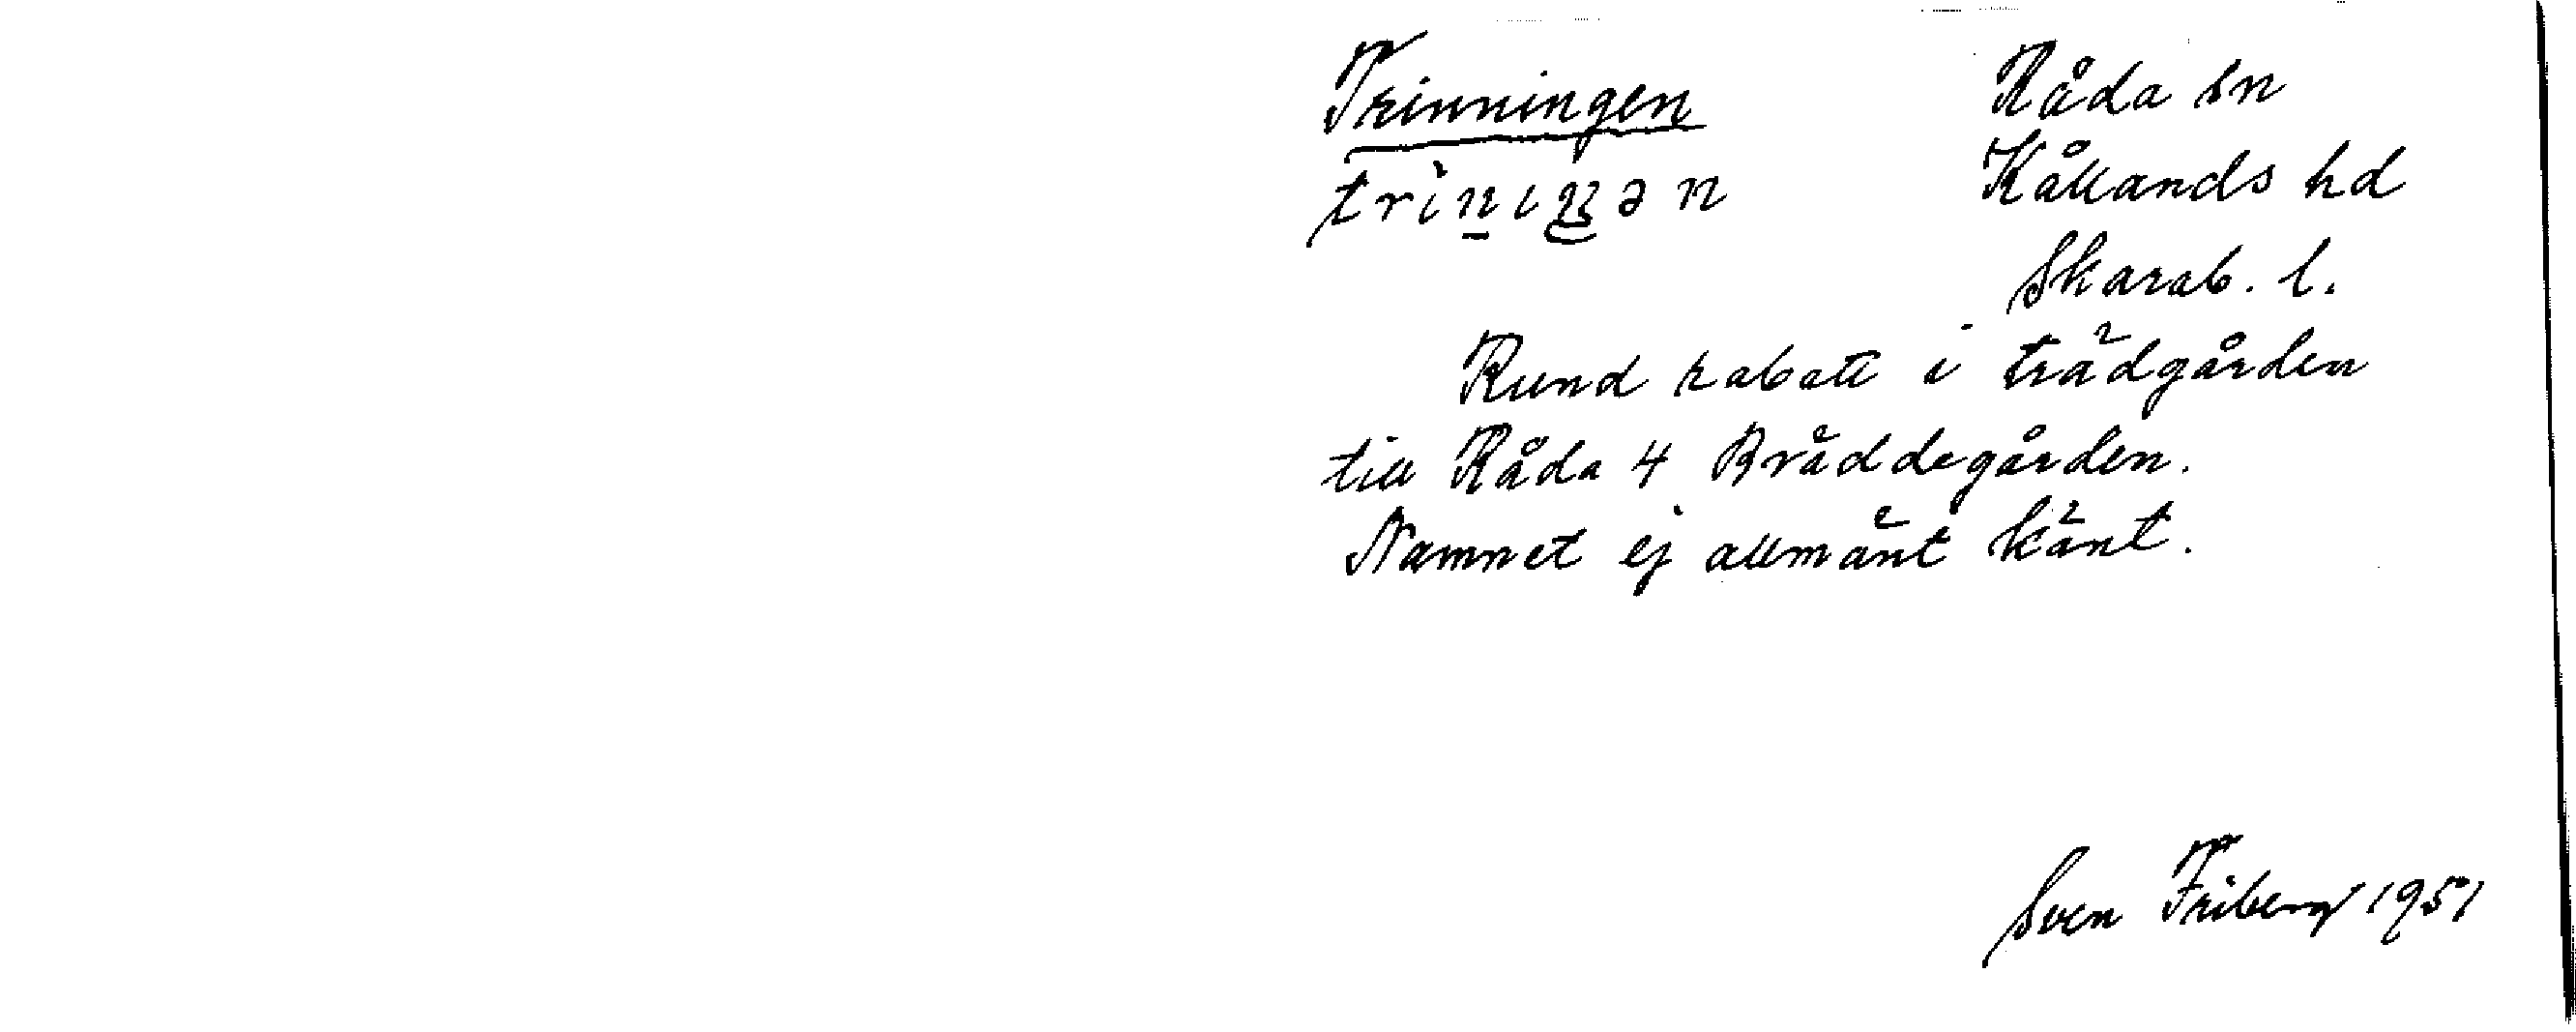 Trinningen
trìn̠ıŋ̮ən
Råda sn
Kållands hd
Skarab. l.
Rund rabatt i trädgården
till Råda 4 Bräddegården.
Namnet ej allmänt känt.
Sven Friberg 1951